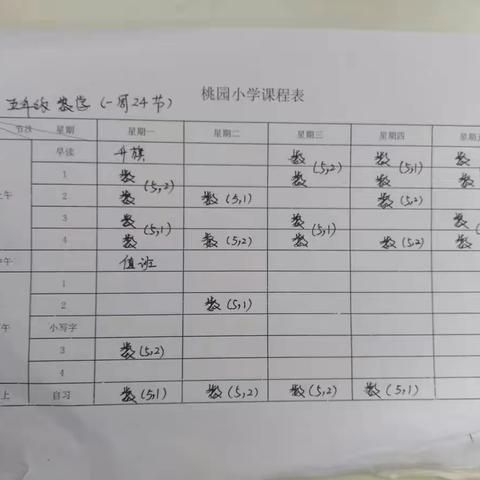 桃园小学课程表
五年级 数学 (一周24节)
节次 星期 星期一 星期二 星期三 星期四 星期五
早读 升旗 数 (5,2) 数 (5,1) 数
1 数 (5,2) 数 数 数
2 数 数 (5,1) 数 (5,2)
3 数 (5,1) 数 (5,1) 数
4 数 数 (5,2) 数 数 (5,2) 数
午 值班
1
2 数 (5,1)
午 小写字
3 数 (5,2)
4
上 自习 数 (5,1) 数 (5,2) 数 (5,2) 数 (5,1)